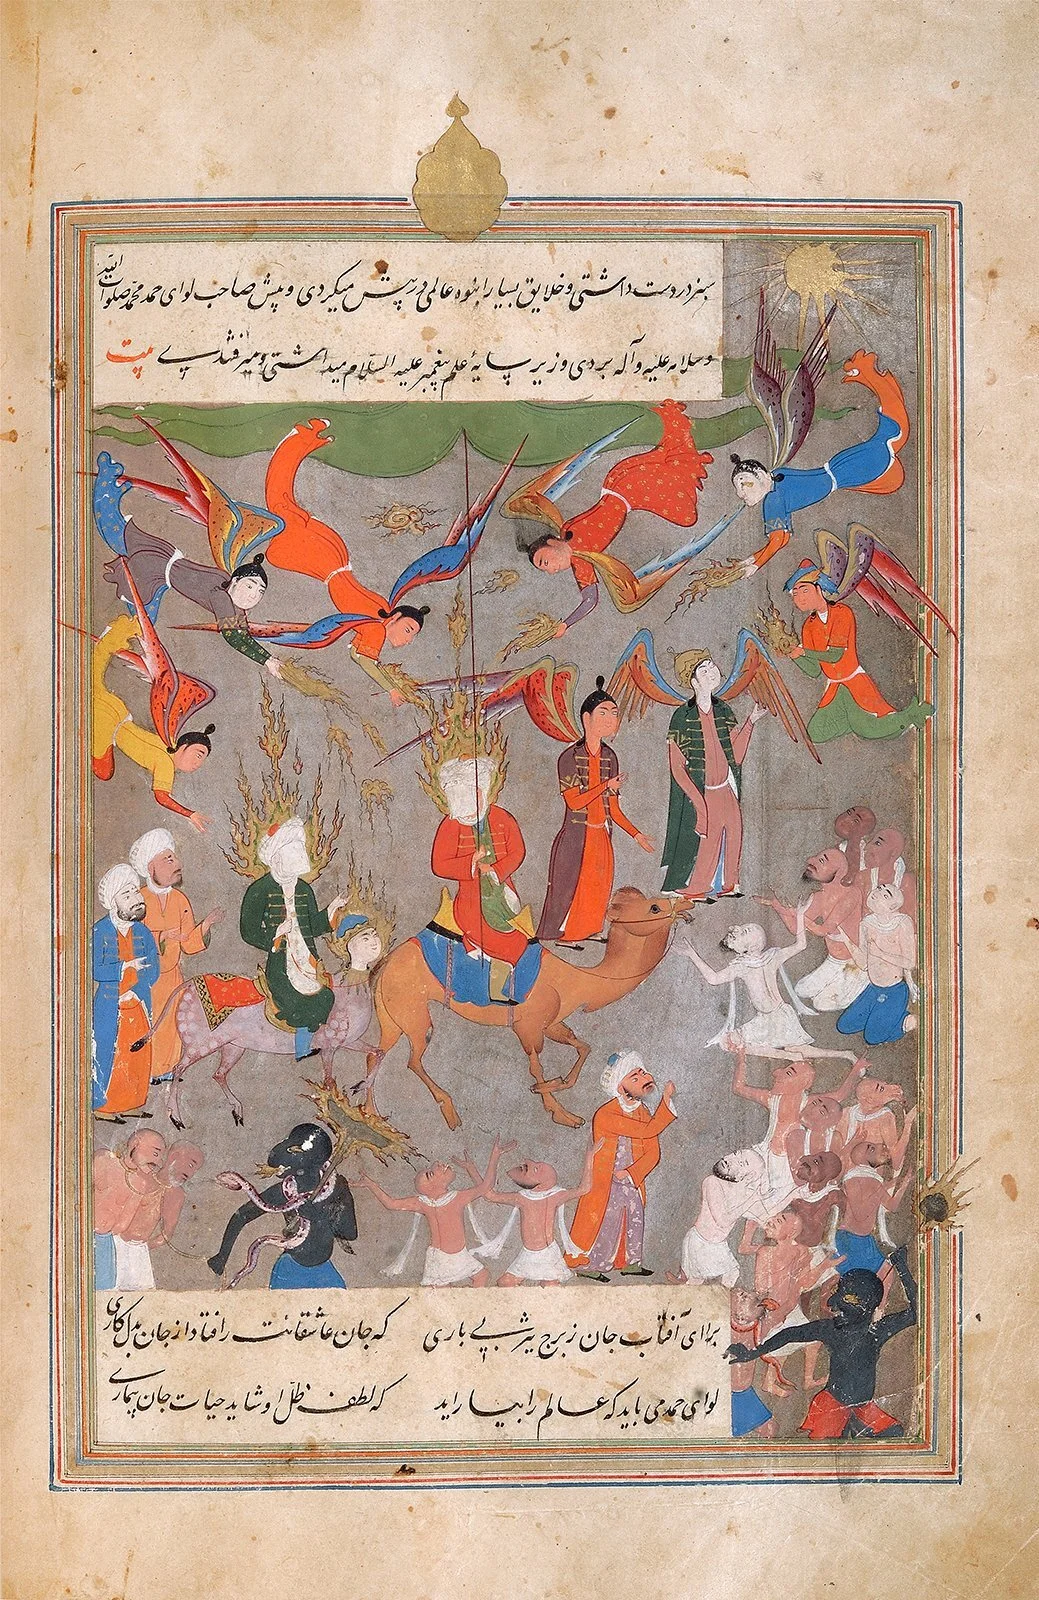 سبز در دست داشتی و خلایق بسیار انبوه عالمی در پیش میکردی و پیش صاحب لوای حمد محمد صلوات الله
وسلامه علیه وآله بردی و زیر سایهٔ علم پیغمبر علیه السلام میداشتی و میرفتند پی بیت
برای آفتاب جان ز برج یثربی باری که جان عاشقانت را فتاد از جان بدل کاری
لوای حمد می باید که عالم را بیاراید که لطف ظل او شاید حیات جان بیماری